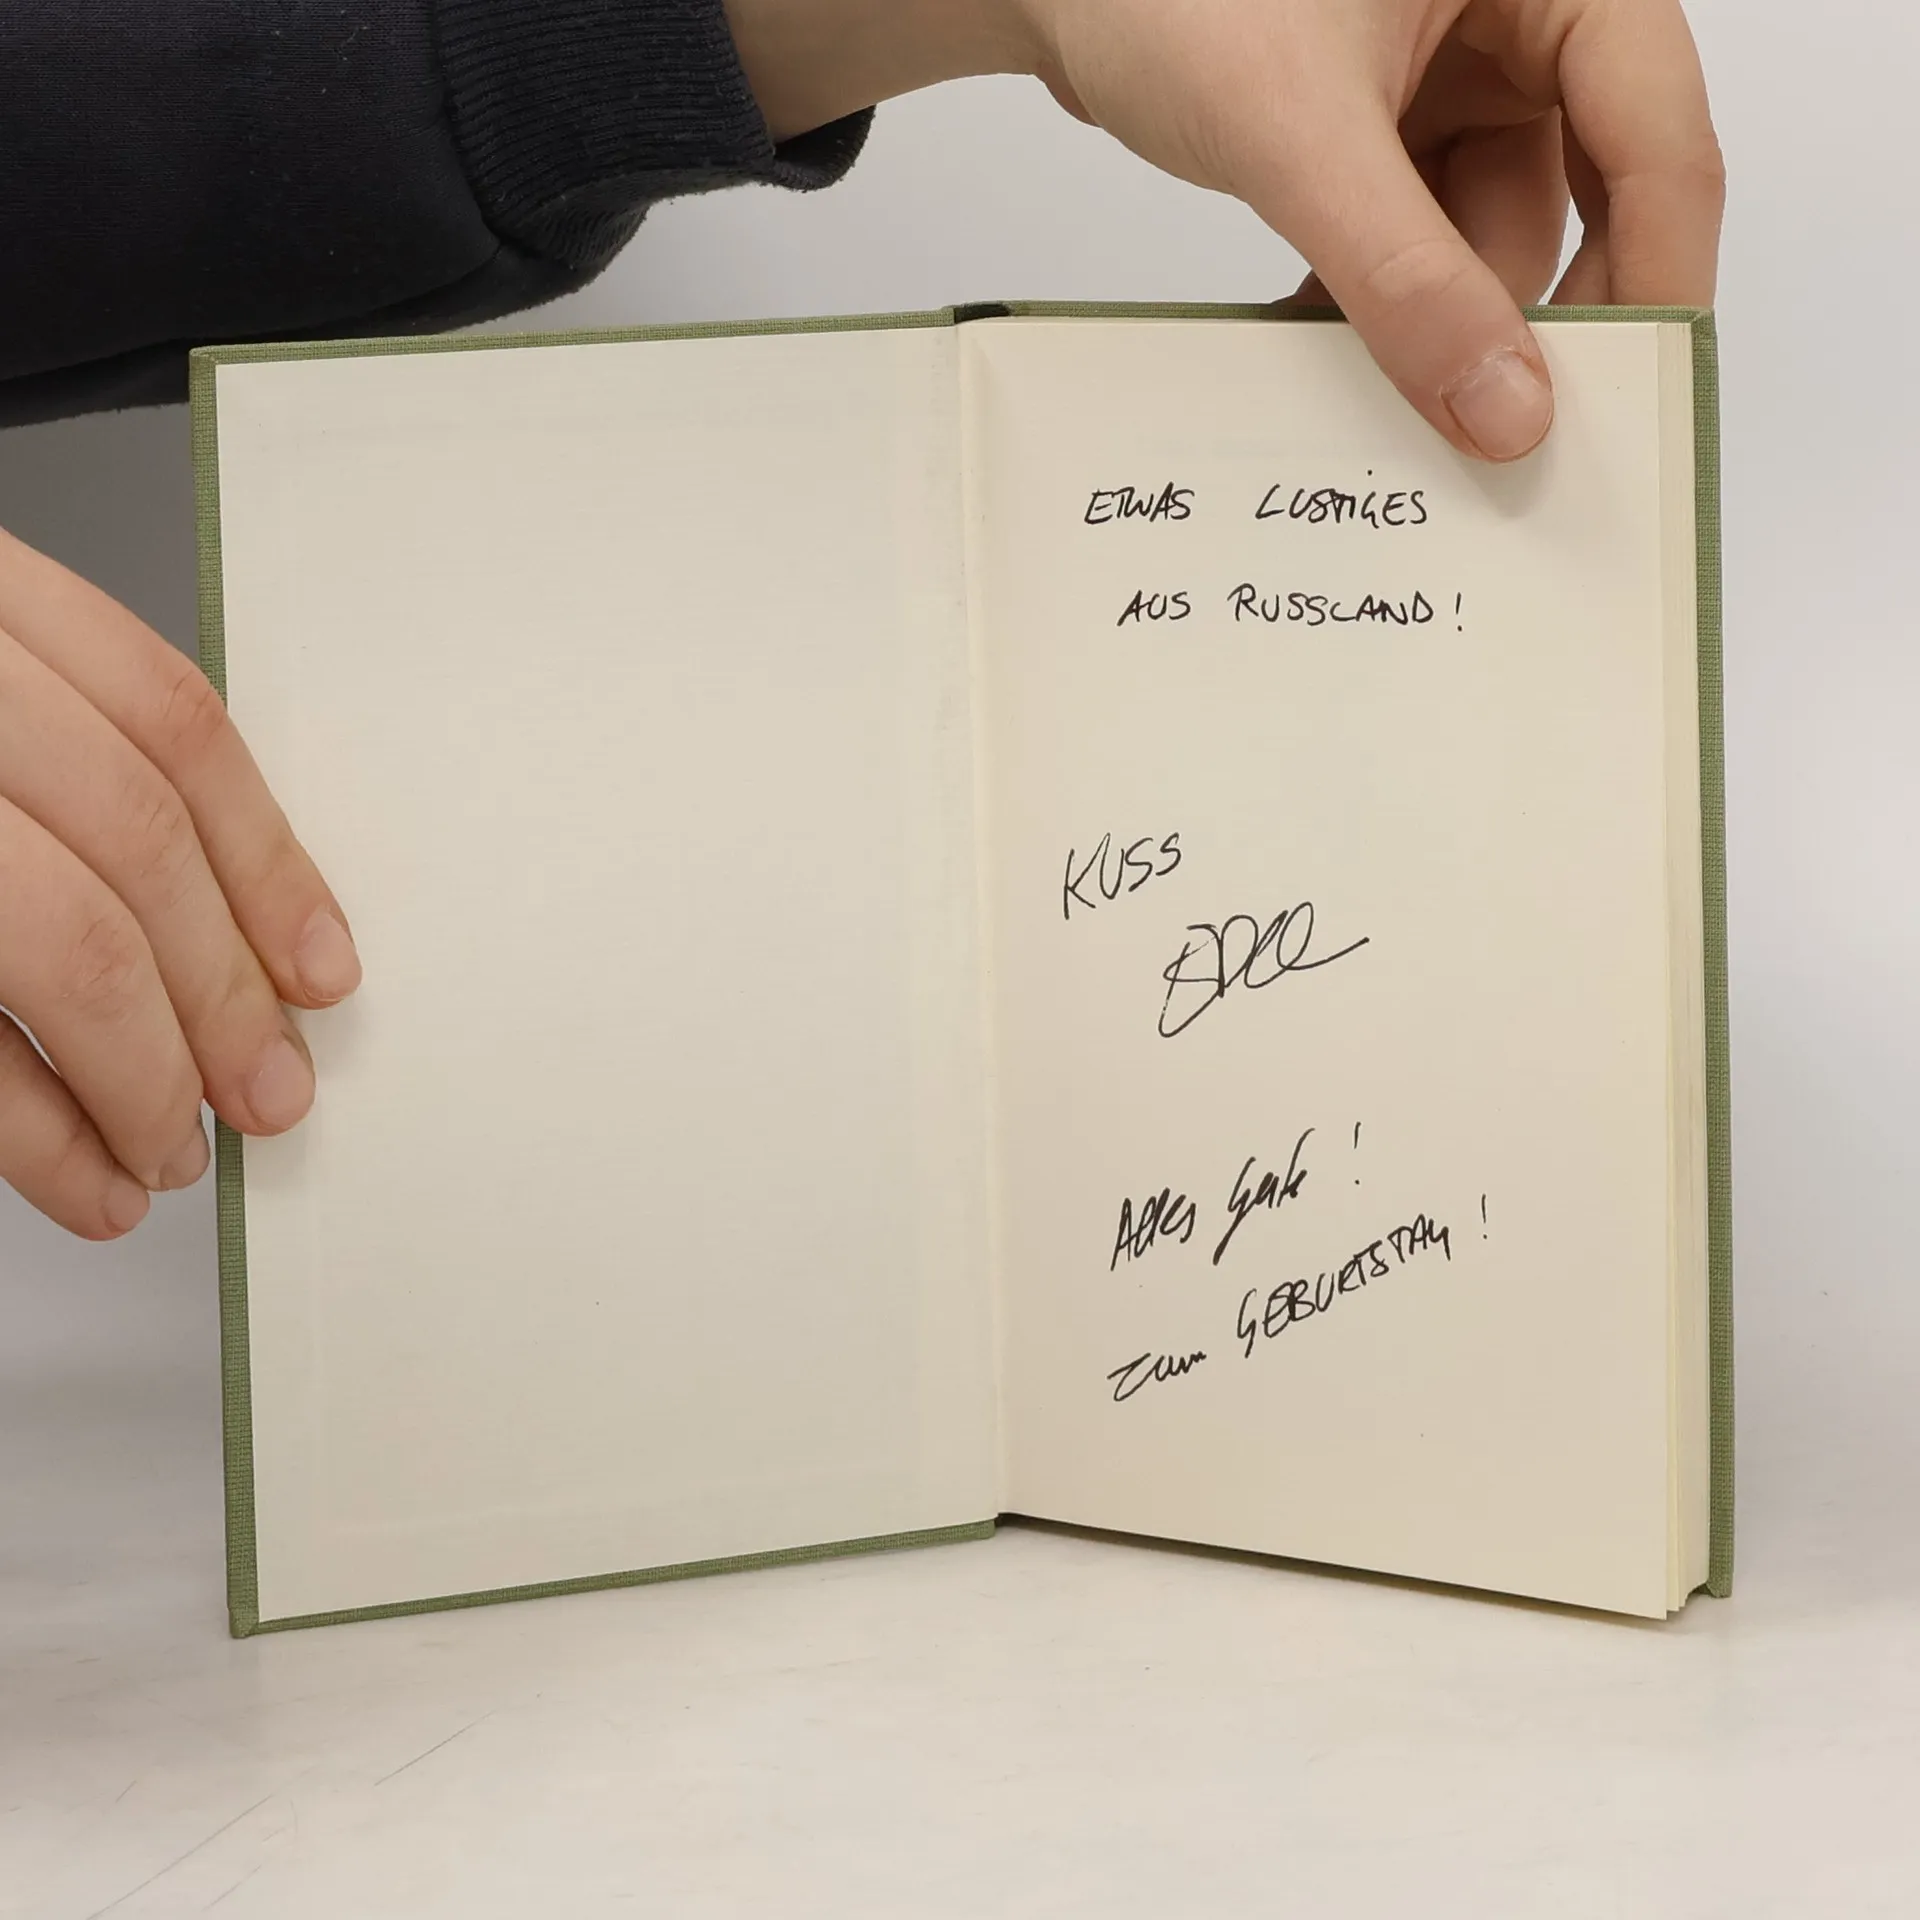 ETWAS LUSTIGES
AUS RUSSLAND!
KUSS
Alles Gute!
zum GEBURTSTAG!